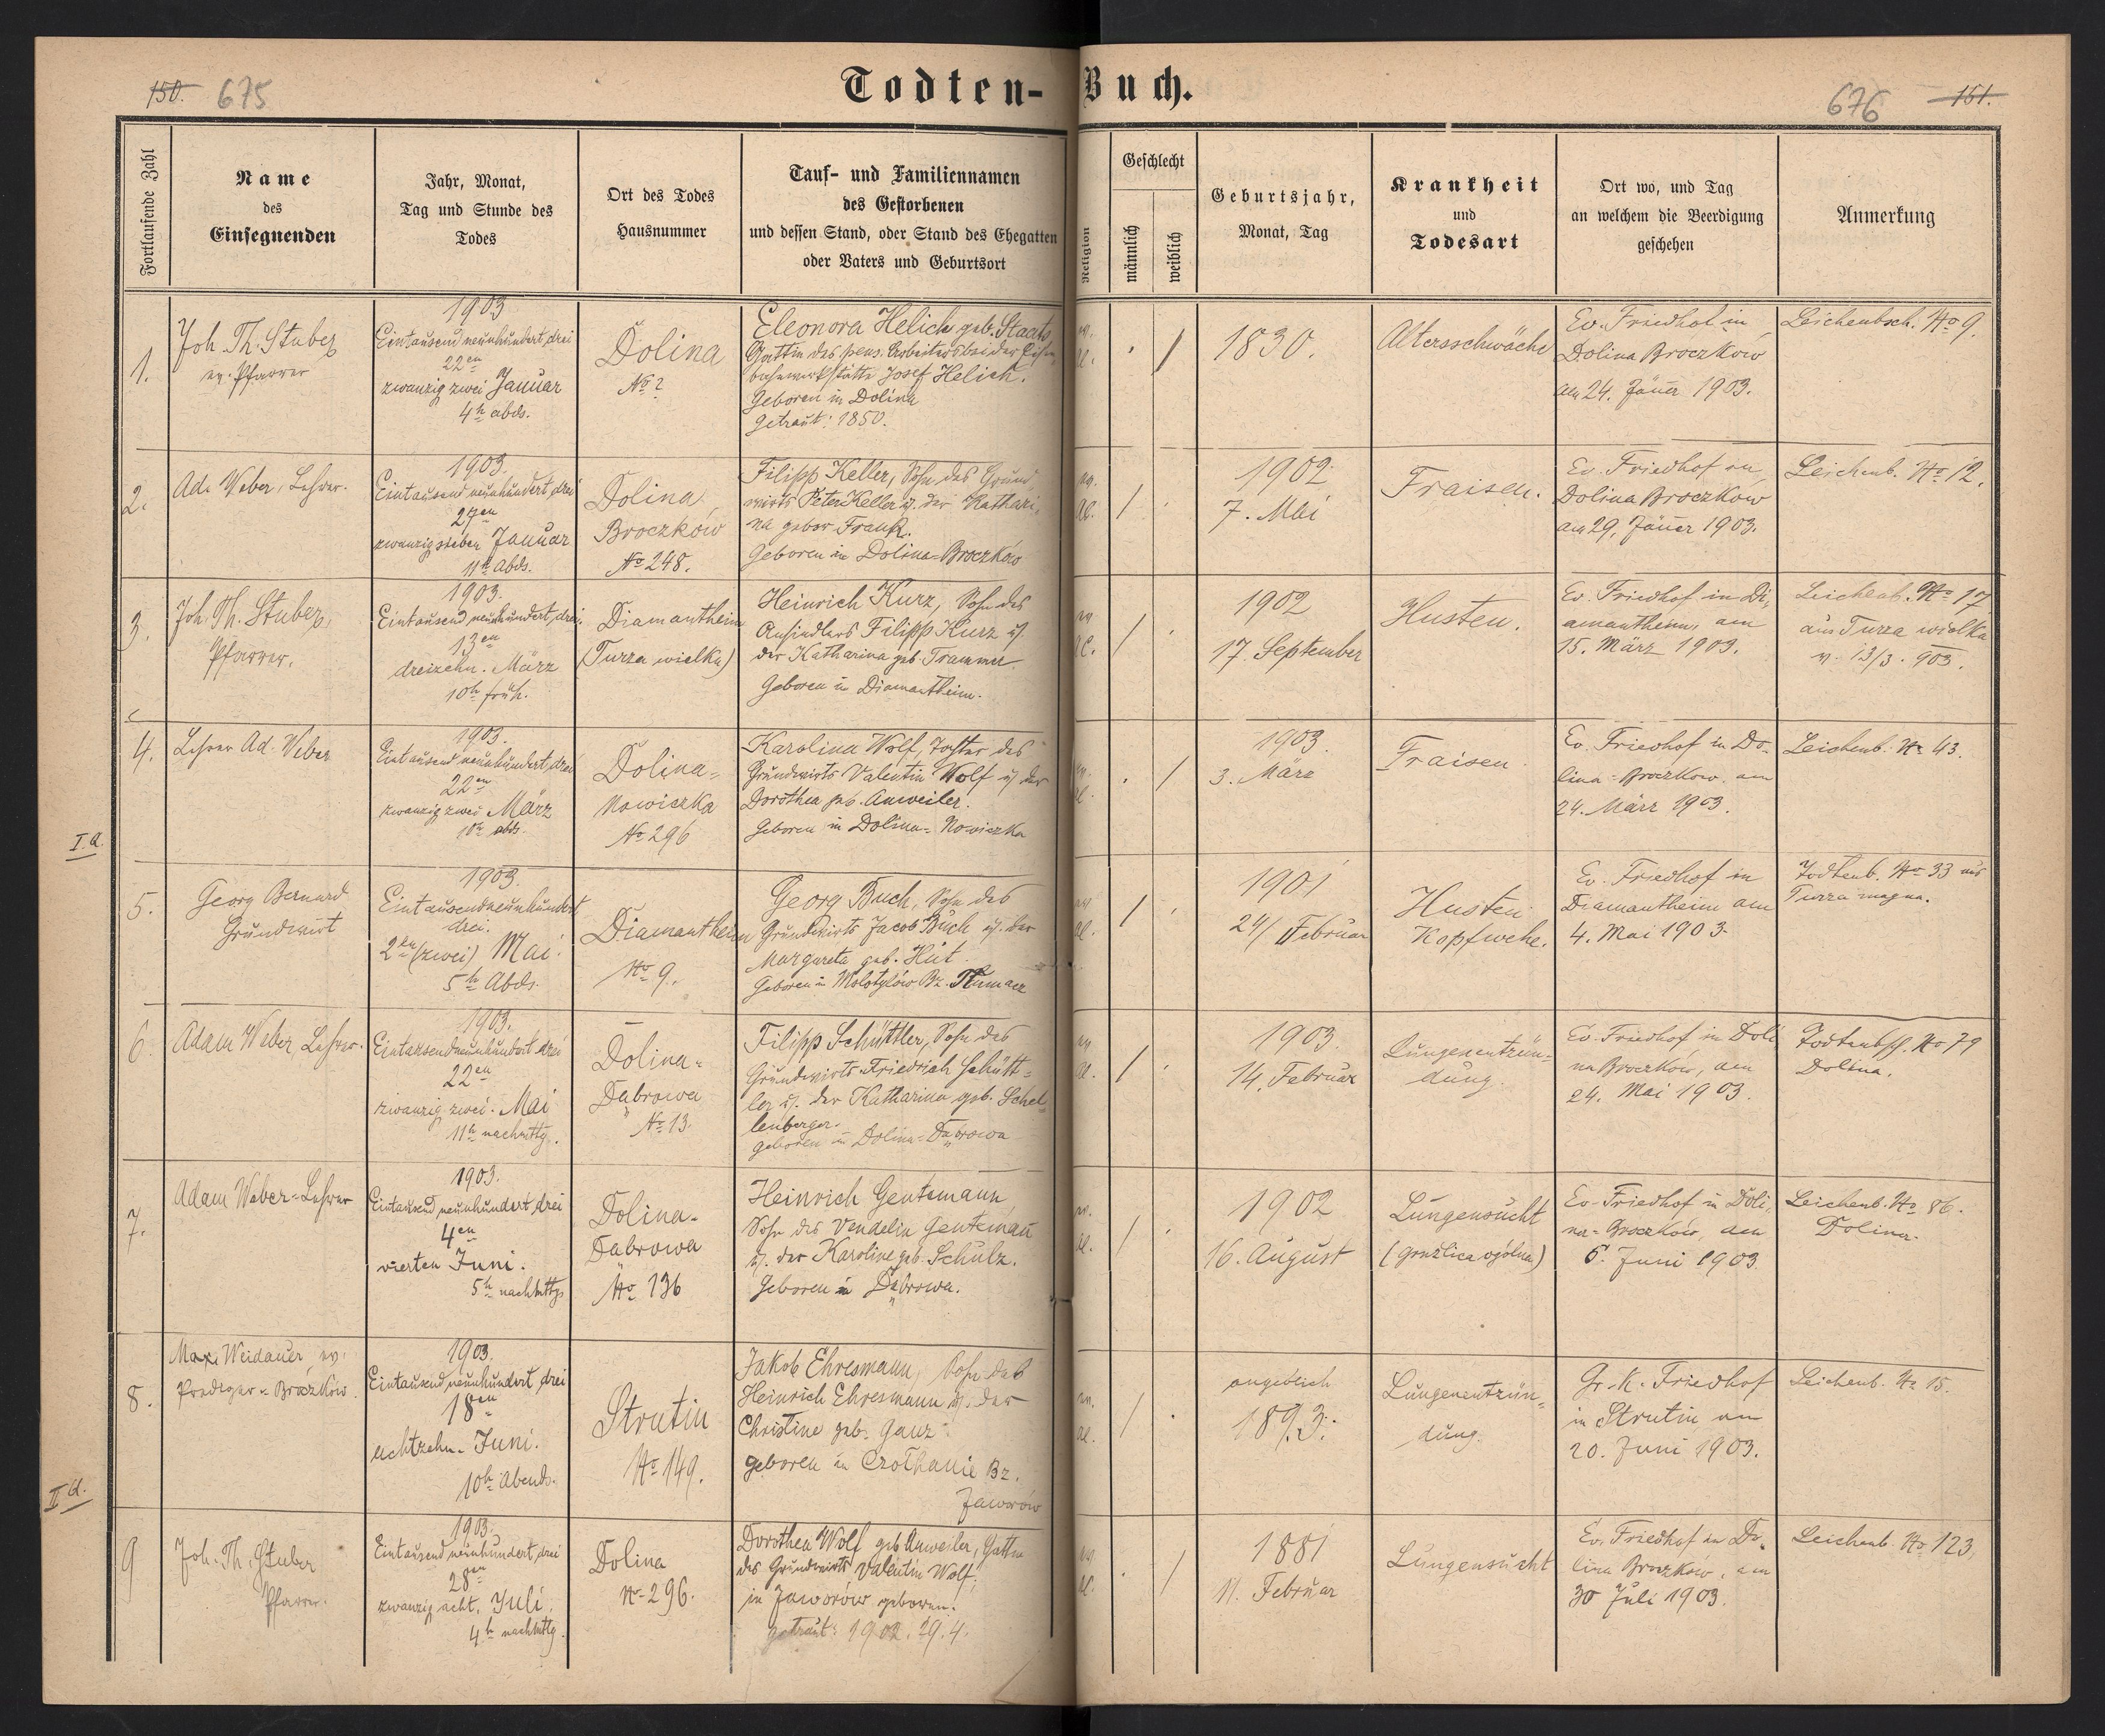 150. 675
Todten-Buch.
676 151.
Fortlaufende Zahl
Name
des
Einsegnenden
Jahr, Monat,
Tag und Stunde des
Todes
Ort des Todes
Hausnummer
Tauf- und Familiennamen
des Gestorbenen
und dessen Stand, oder Stand des Ehegatten
oder Vaters und Geburtsort
Religion
Geschlecht
männlich
weiblich
Geburtsjahr,
Monat, Tag
Krankheit
und
Todesart
Ort wo, und Tag
an welchem die Beerdigung
geschehen
Anmerkung
1.
Joh. Th. Stuber
ev. Pfarrer
1903
Eintausend neunhundert, drei
22en
zwanzig zwei Januar
4h abds.
Dolina
No ?
Eleonora Helich geb. Staats
Gattin des pens. Arbeiters bei der Eisen
bahnwerkstätte Josef Helich.
Geboren in Dolina
Getraut: 1850.
/
1830.
Altersschwäche
Ev. Friedhof in
Dolina Broczków
am 24. Jäner 1903.
Leichenbsch. No 9.
2.
Ad. Weber, Lehrer.
1903.
Eintausend neunhundert, drei
27en
zwanzigsieben Januar
11h Abds.
Dolina
Broczków
No 248.
Filipp Keller, Sohn des Grund
wirts Peter Keller u. der Kathari,
na gebor Frank.
Geboren in Dolina-Broczków
/
1902
7. Mai
Fraisen.
Ev. Friedhof in
Dolina Broczków
am 29. Jäner 1903.
Leichenb. No 12.
3.
Joh. Th. Stuber,
Pfarrer.
1903.
Eintausend neunhundert, drei.
13en
dreizehn. März
10h früh.
Diamantheim
(Turza wielka)
Heinrich Kurz, Sohn des
Ansiedlers Filipp Kurz u.
der Katharina geb. Trammer.
Geboren in Diamantheim.
/
1902
17. September
Husten.
Ev. Friedhof in Di,
amantheim am
15. März 1903.
Leichenb. No 17
aus Turza wielka
v. 13/3. 903.
4.
Lehrer Ad. Weber
1903.
Eintausend neunhundert, drei
22en
zwanzig zwei März
10h abds.
Dolina=
Nowiczka
No 296
Karolina Wolf, Tochter des
Grundwirts Valentin Wolf u. der
Dorothea geb. Anweiler.
Geboren in Dolina= Nowiczka
/
1903.
3. März
Fraisen
Ev. Friedhof in Do-
lina=Broczkow, am
24. März 1903.
Leichenb. No 43.
I.a.
5.
Georg Bernard
Grundwirt
1903.
Eintausendneunhundert
drei.
2en (zwei) Mai.
5h Abds.
Diamantheim
No 9.
Georg Buch, Sohn des
Grundwirts Jacob Buch u. der
Margareta geb. Hut.
Geboren in Mołotyłów Bz. Tłumacz
/
1901
24/ Februar
Husten
Kopfwehe.
Ev. Friedhof in
Diamantheim am
4. Mai 1903.
Todtenb. No 33 aus
Turza magna.
6.
Adam Weber, Lehrer.
1903.
Eintausendneunhundert drei
22en
zwanzig zwei. Mai
11h nachmttg.
Dolina-
Dąbrowa
No 13.
Filipp Schüttler, Sohn des
Grundwirts Friedrich Schütt=
ler u. der Katharina geb. Schel=
lenberger.
geboren in Dolina=Dąbrowa
/
1903.
14. Februar
Lungenentzün=
dung.
Ev. Friedhof in Doli
na Broczków, am
24. Mai 1903.
Todtenbsch. No 79
Dolina.
7.
Adam Weber=Lehrer
1903.
Eintausend neunhundert, drei
4en
vierten Juni.
5h nachmttgs
Dolina-
Dąbrowa
No 136
Heinrich Gentemann,
Sohn des Vendelin Gentemann
u. der Karoline geb. Schulz.
Geboren in Dąbrowa.
/
1902
16. August
Lungensucht
(gruźlica ogólna)
Ev. Friedhof in Doli,
na=Broczków, am
6. Juni 1903.
Leichenb. No 86.
Dolina.
8.
Max Weidauer, ev.
Prediger= Broczków.
1903.
Eintausend, neunhundert, drei
18en
achtzehn. Juni.
10h Abends.
Strutin
No 149.
Jakob Ehresmann, Sohn des
Heinrich Ehresmann u. der
Christine geb. Ganz
geboren in Czołhanie Bz.
Jaworów
/
angeblich
1893.
Lungenentzün,
dung.
Gr. k. Friedhof
in Strutin am
20. Juni 1903.
Leichenb. No 15.
II a.
9
Joh. Th. Stuber
Pfarrer.
1903.
Eintausend neunhundert, drei
28en
zwanzig acht. Juli.
4h nachmttg.
Dolina
No 296.
Dorothea Wolf geb Anweiler, Gattin
des Grundwirts Valentin Wolf,
in Jaworów geboren.
getraut: 1902. 29.4.
/
1881
11. Februar
Lungensucht
Ev. Friedhof in Do,
lina Broczków, am
30 Juli 1903.
Leichenb. No 123.